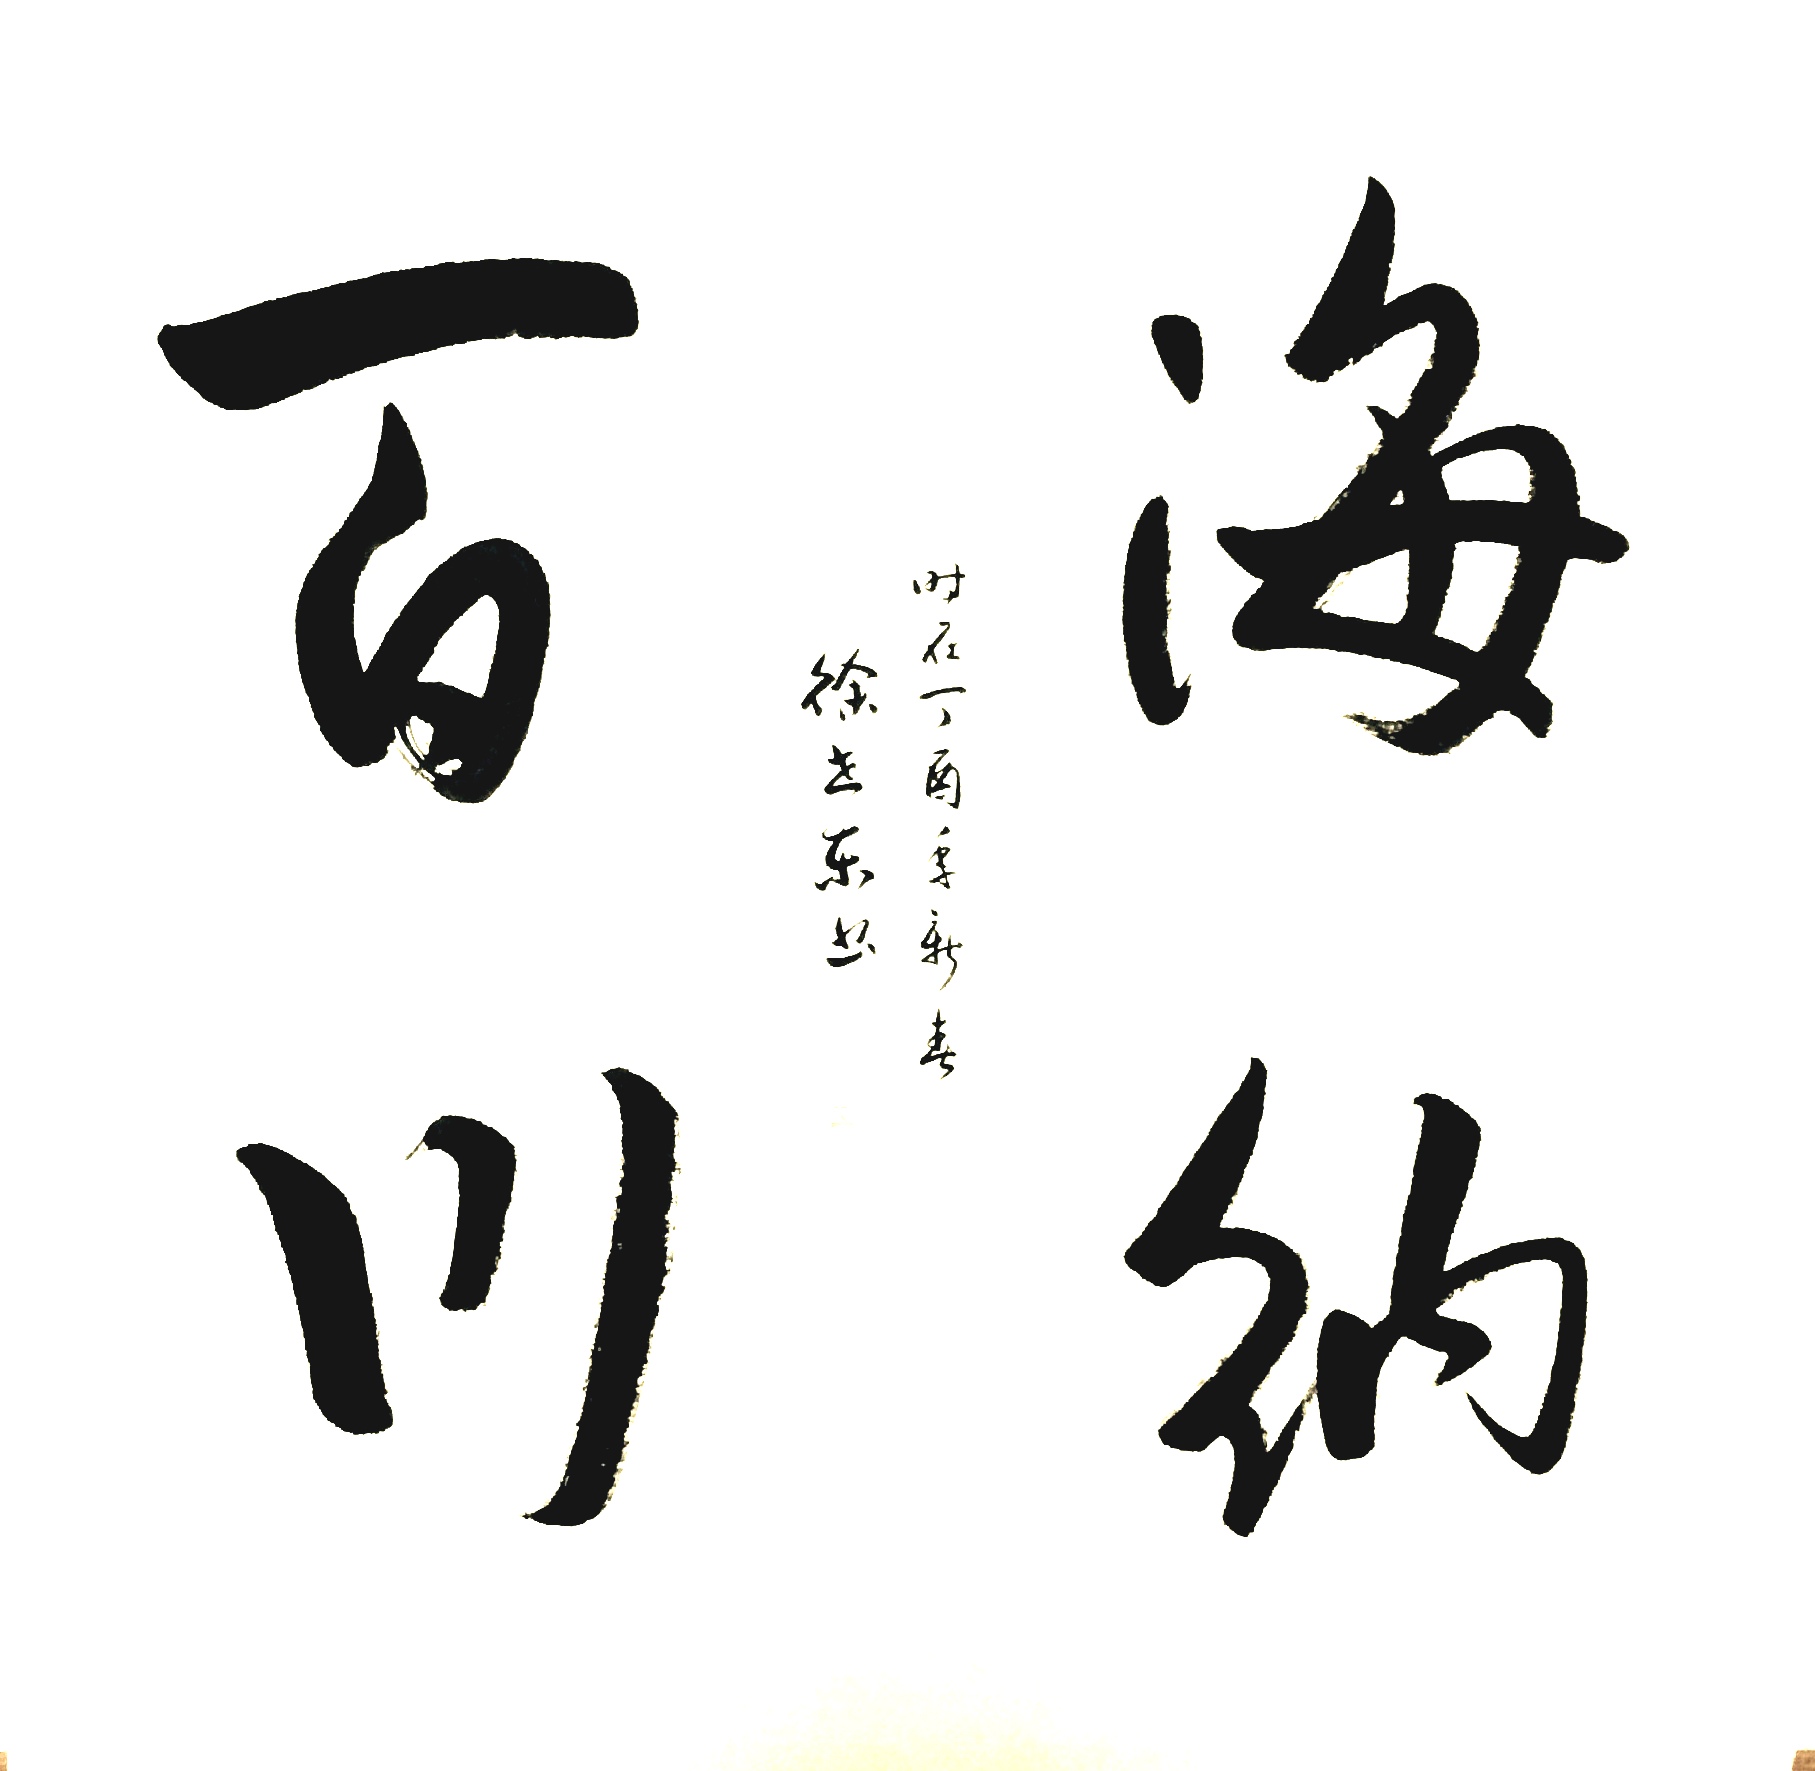 海纳
百川
时在丁酉年新春
徐志东书